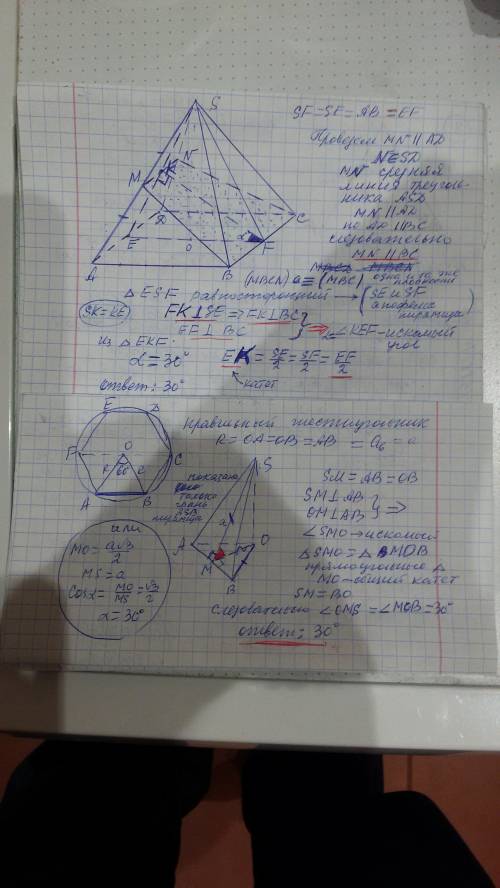 S
SF=SE=AB=EF
Проведем MN || AD
N∈SD
MN средняя
линия треуголь-
ника ASD
MN || AD
но AD || BC
следовательно
MN || BC
M
N
K
D
C
E
O
F
α
A
B
(MBCN) ≡ (MBC) одна и та же плоскость
△ ESF равносторонний → (SE и SF апофемы пирамиды)
SK=KE
FK⊥SE ⇒ FK⊥BC
EF ⊥ BC
⇒ ∠KEF – искомый угол
Из △ EKF:
α=30°
EK = SE/2 = SF/2 = EF/2
катет
ответ: 30°
E
D
F
O
C
R
60°
A
B
правильный шестиугольник
R=OA=OB=AB = a₆ = a
показана
только
грань
ASB
пирамиды
S
a
A
O
M
B
SM=AB=OB
SM⊥AB
OM⊥AB
⇒
∠SMO → искомый
△SMO = △ MOB
прямоугольные △
MO – общий катет
SM=BO
следовательно ∠OMS = ∠MOB = 30°
ответ: 30°
или
MO= a√3/2
MS=a
cosα= MO/MS = √3/2
α=30°